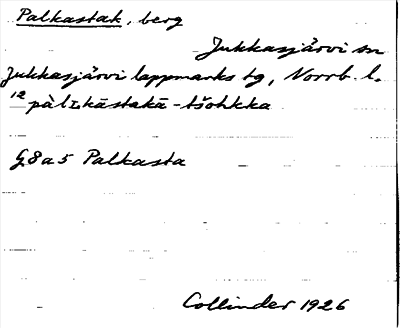 Palkastak, berg
Jukkasjärvi sn
Jukkasjärvi lappmarks tg, Norrb. l.
12 pàlᴌkāstakā-tšohkka
G8a5 Palkasta
Collinder 1926